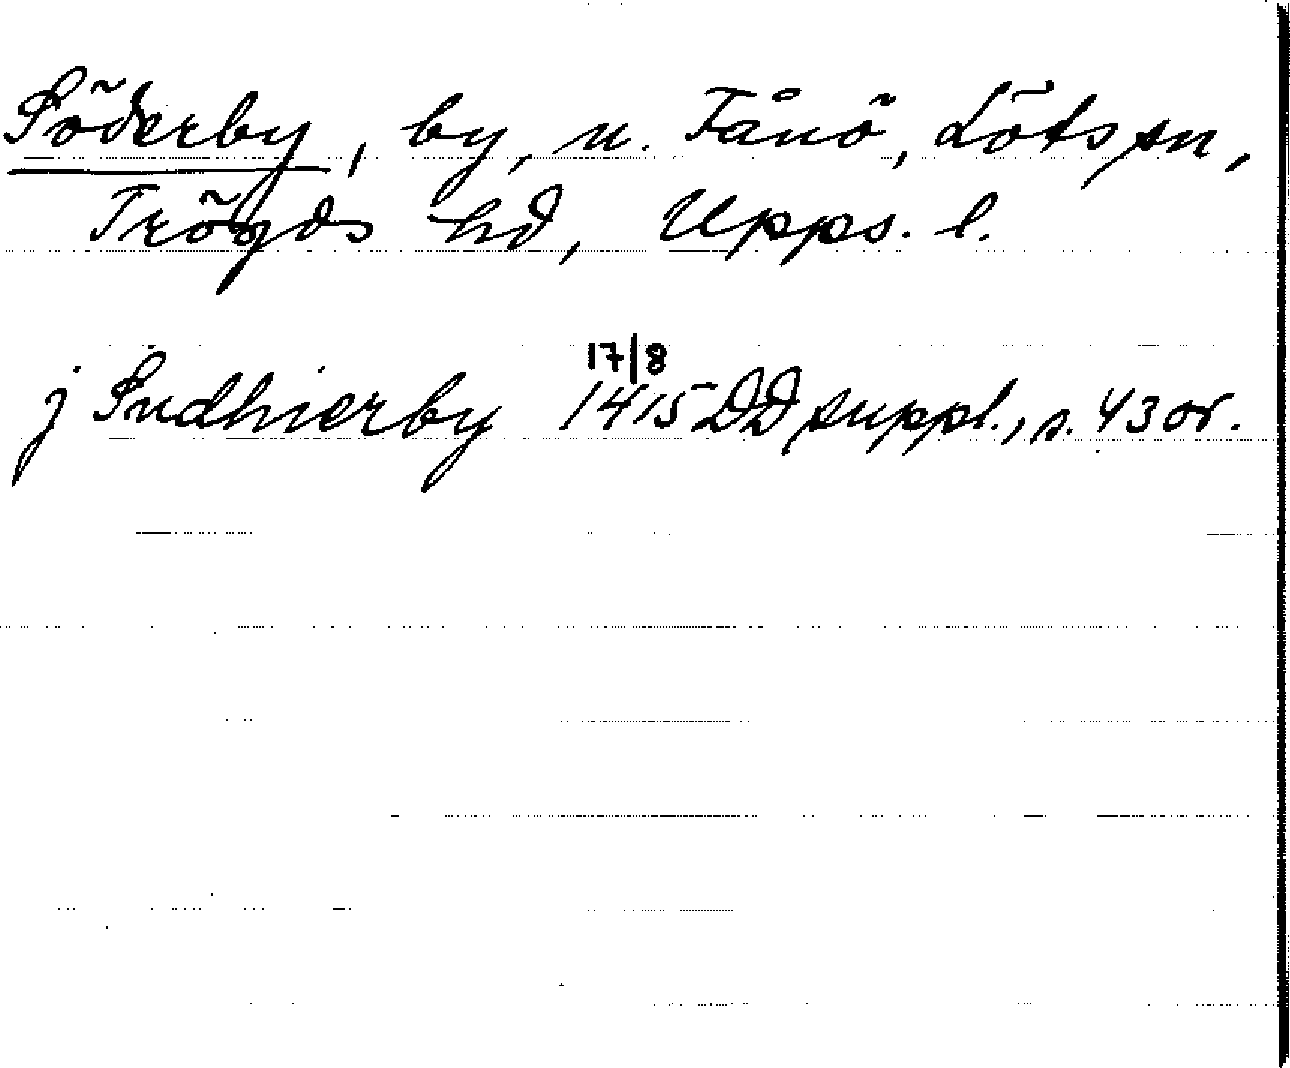 Söderby, by, u. Tånö, Löts sn,
Trögds hd, Upps. l.
17/8
j Sudhierby 1415 DD suppl., s. 43 or.